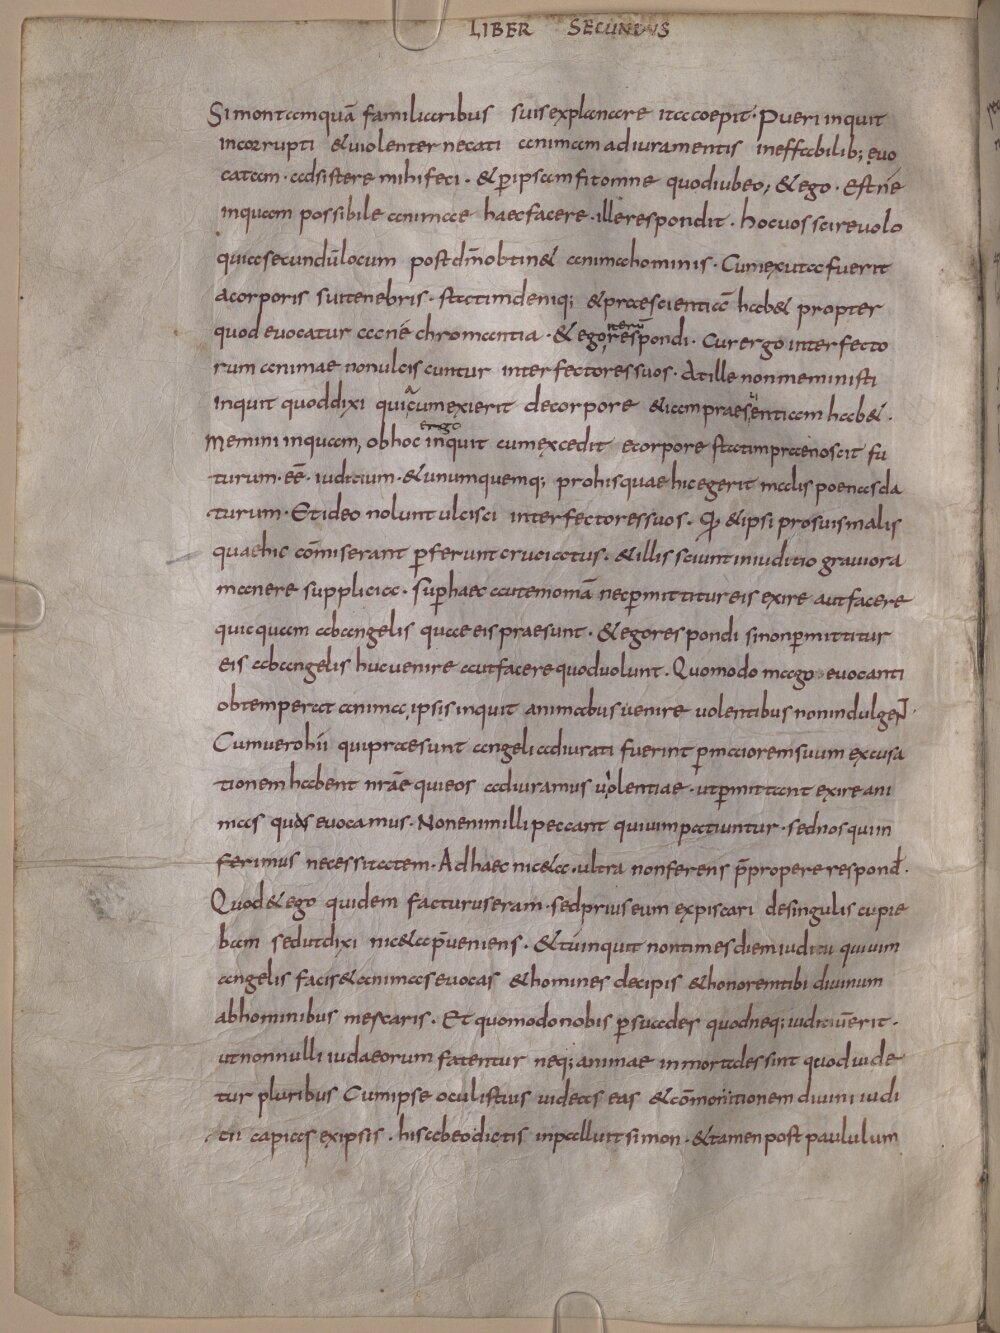 LIBER SECUNDVS
Simon tamquā familiaribus suis explanare ita coepit · Pueri inquit
incorrupti & violenter necati animam adiuramentis ineffabilib; evo
catam · adsistere mihi feci · & ꝑ ipsam fit omne quod iubeo; & ego · Est nē
inquam possibile animae haec facere · ille respondit · hoc vos scire volo
quia secundū locum post dm̄ obtin& anima hominis · Cum exuta fuerit
a corporis sui tenebris · statim deniq; & praescientiā hab& propter
quod evocatur ad necromantia · & ego iterū respondi · Cur ergo interfecto
rum animae non ulciscuntur interfectores suos · At ille non meministi
inquit quod dixi quia cum exierit de corpore &iam praesentiam hab& ·
Memini inquam, ob hoc ergo inquit cum excedit e corpore statim praenoscit fu
turum · eē · iudicium · & unumquemq; pro his quae hic egerit malis poenas da
turum · Et ideo nolunt ulcisci interfectores suos · Quod & ipsi pro suis malis
quae hic cōmiserant ꝑferunt cruciatus · & illis sciunt in iuditio graviora
manere supplicia · sup̄ haec autem omā nec ꝑmittitur eis exire aut facere
quicquam ab angelis quae eis praesunt · & ego respondi si non ꝑmittitur
eis ab angelis huc venire aut facere quod volunt · Quomodo mago evocanti
obtemperat anima, ipsis inquit animabus venire volentibus non indulgen̄ ·
Cum vero hii qui praesunt angeli adiurati fuerint ꝑ maiorem suum excusa
tionem habent nrāe qui eos adiuramus violentiae · ut ꝑmittant exire ani
mas quas evocamus · Non enim illi peccant qui vim patiuntur · sed nos qui in
ferimus necessitatem · Ad haec nic&a · ultra non ferens p̄propere respond̄ ·
Quod & ego quidem facturus eram · sed prius eum expiscari de singulis cupie
bam sed ut dixi nic&a p̄veniens · & tu inquit non times diem iuditii qui vim
angelis facis & animas evocas & homines decipis & honorem tibi divinum
ab hominibus mercaris · Et quomodo nobis ꝑsuades quod neq; iuditiū erit ·
ut nonnulli iudaeorum fatentur neq; animae inmortales sint quod vide
tur pluribus Cum ipse oculis tuis videas eas & cōmonitionem divini iudi
tii capias ex ipsis · his ab eo dictis inpalluit simon · & tamen post paululum